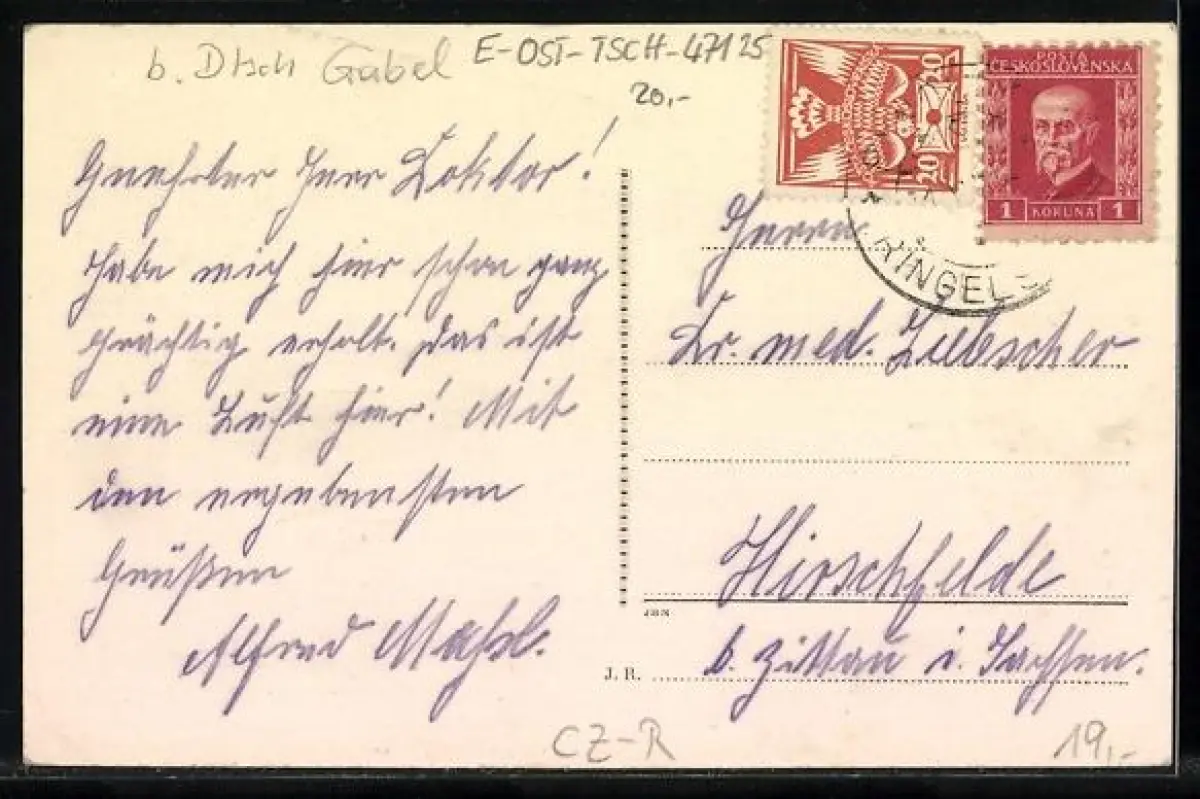 b. Dtsch Gabel
E-OST-TSCH-47125
20,-
Geehrter Herr Doktor!
Habe mich hier schon ganz
prächtig erholt. Das ist
eine Luft hier! Mit
den ergebensten
Grüßen
Alfred
POSTA
ČESKOSLOVENSKA
1 KORUNA 1
20
20
RINGELS
Herrn
Dr. med. Liebscher
Hirschfelde
b. Zittau i. Sachsen.
JBN
J. R.
CZ-R
19,-